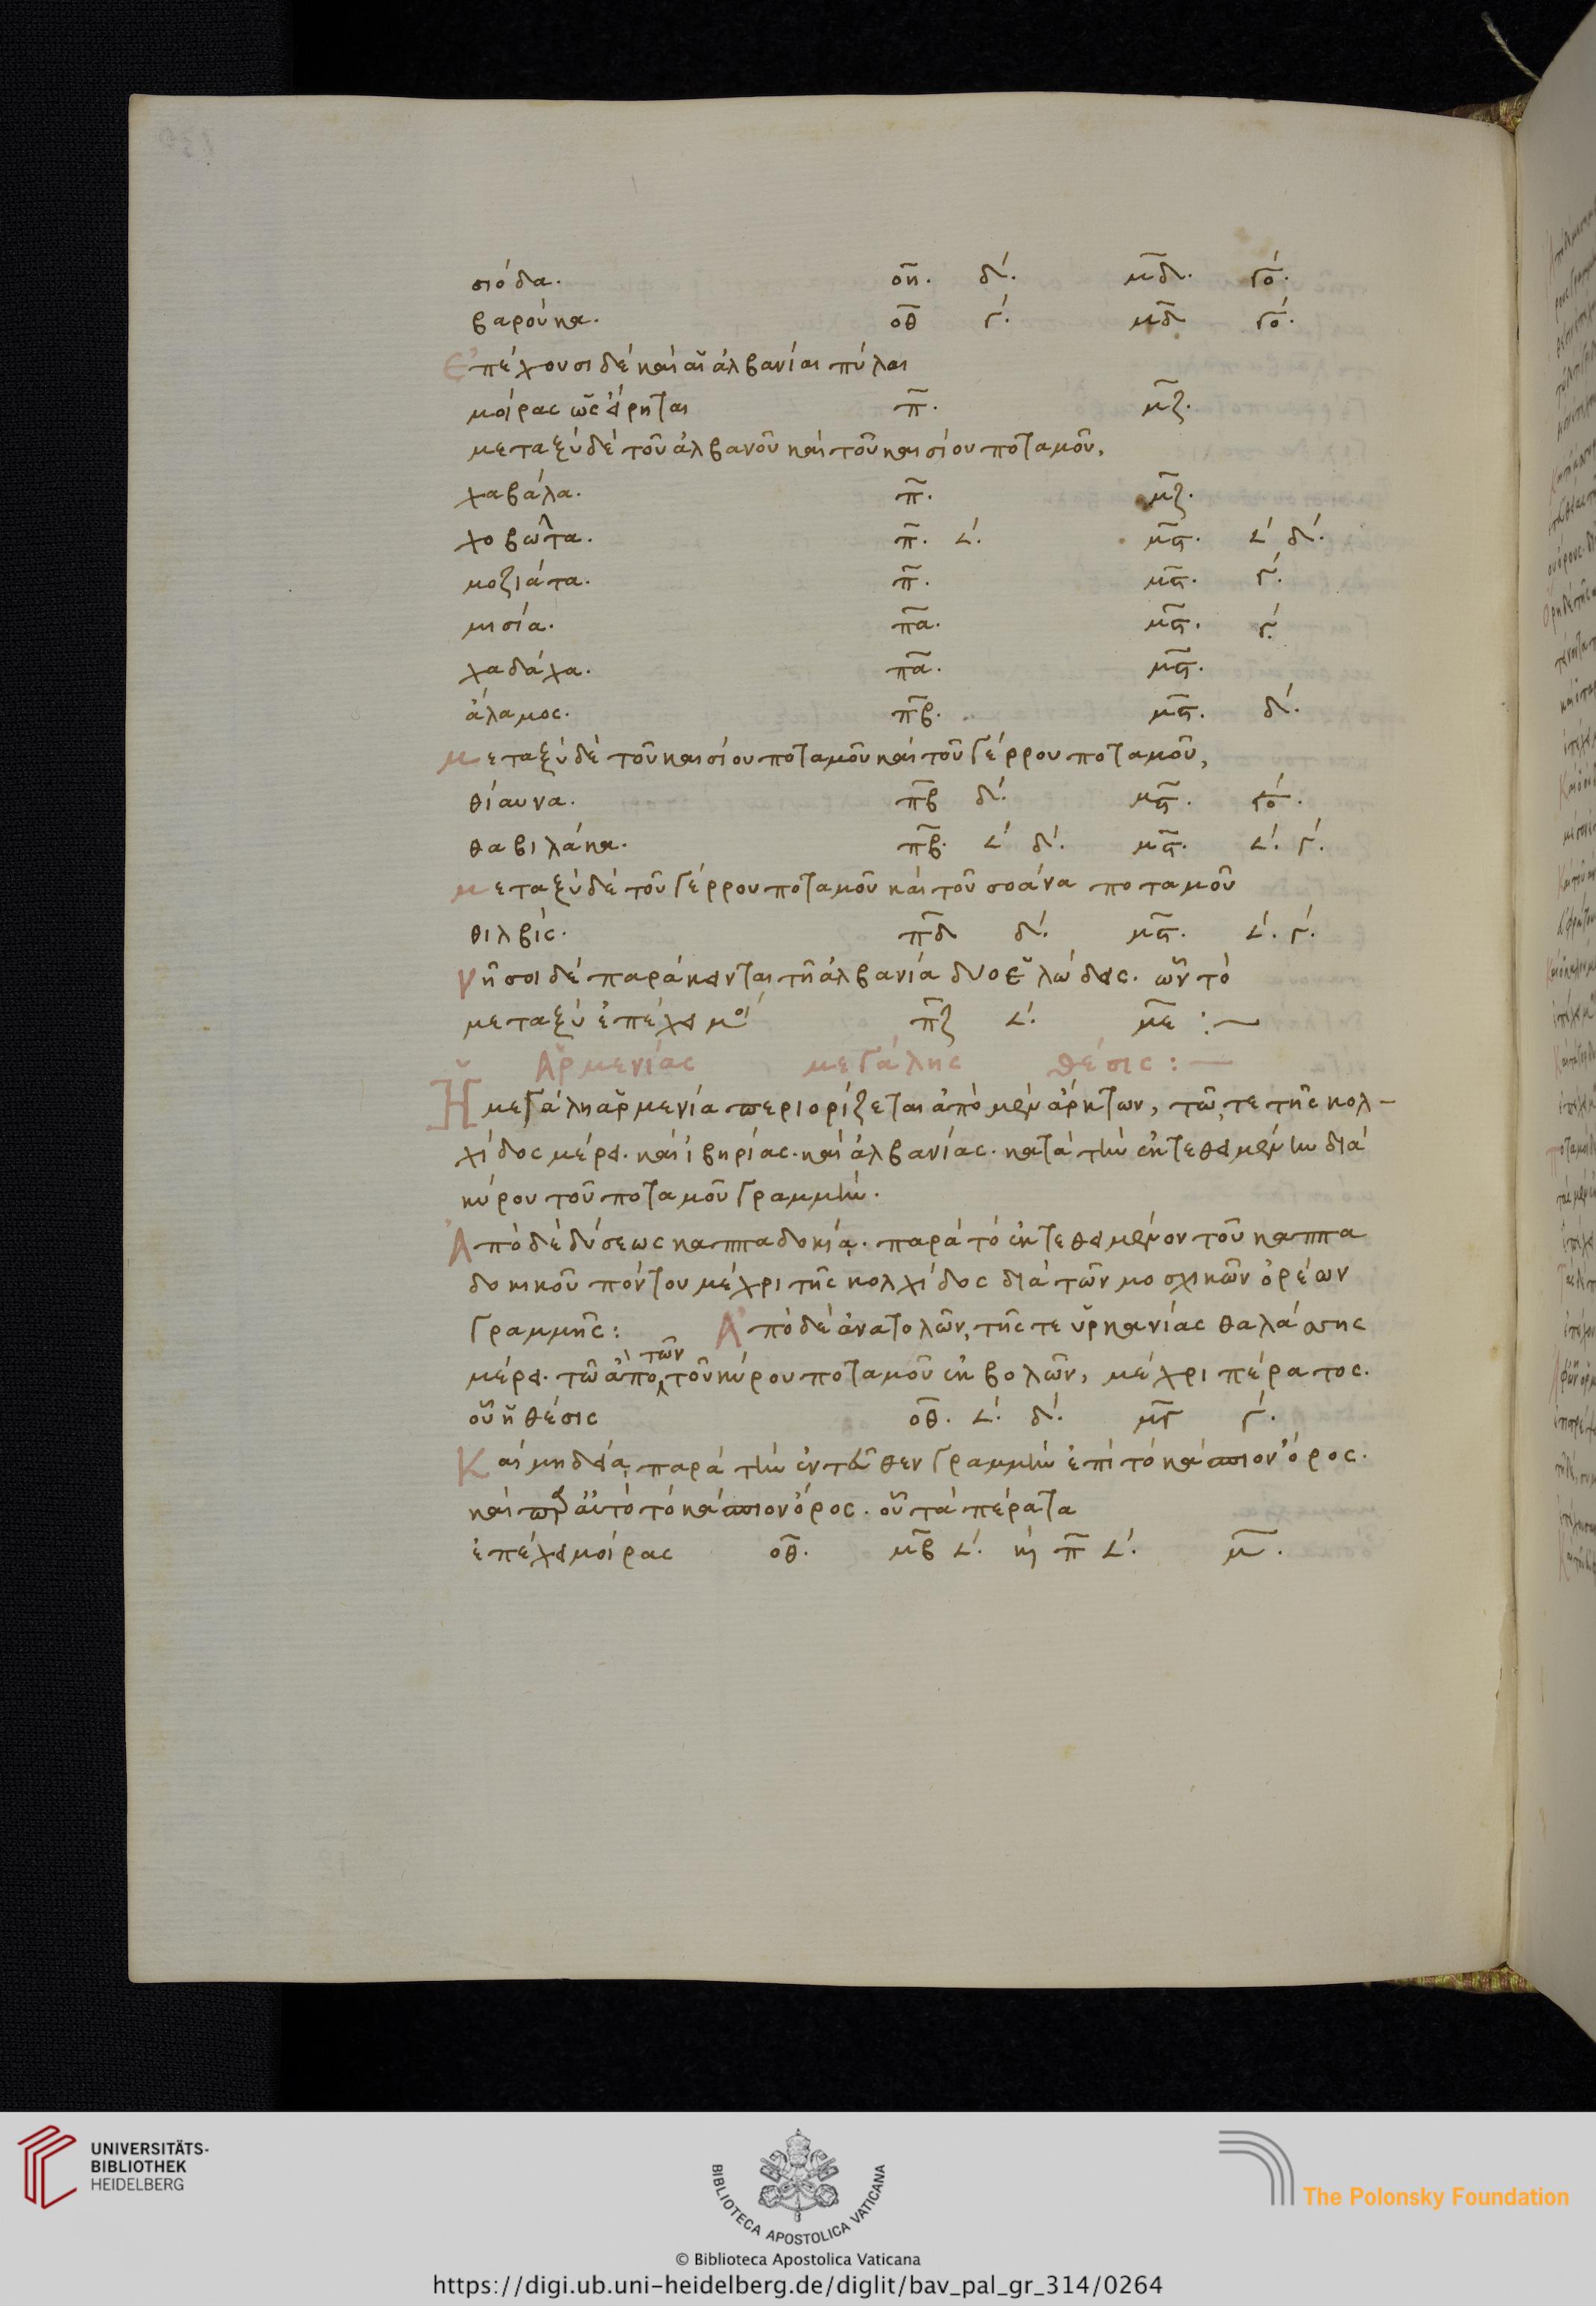 σιόδα. ο̅η̅. δ´. μ̅δ̅. γο´.
βαρούκα. ο̅θ̅ γ´. μ̅δ̅ γο´.
Ἐπέχουσι δὲ καὶ αἱ ἀλβανίαι πύλαι
μοίρας ὡς εἴρηται π̅. μ̅ζ̅.
μεταξὺ δὲ τοῦ ἀλβανοῦ καὶ τοῦ καισίου ποταμοῦ,
χαβάλα. π̅. μ̅ζ̅.
χοβῶτα. π̅. 𐅵´. μ̅ϛ̅. 𐅵´ δ´.
μοζιάτα. π̅. μ̅ϛ̅. γ´.
μισία. π̅α̅. μ̅ϛ̅. γ´.
χαδάχα. π̅α̅. μ̅ϛ̅.
ἄλαμος. π̅β̅. μ̅ϛ̅. δ´.
μεταξὺ δὲ τοῦ καισίου ποταμοῦ καὶ τοῦ γέρρου ποταμοῦ,
θίαυνα. π̅β̅ δ´. μ̅ϛ̅. γο´.
θαβιλάκα. π̅β̅. 𐅵´ δ´. μ̅ϛ̅. 𐅵´. γ´.
μεταξὺ δὲ τοῦ γέρρου ποταμοῦ καὶ τοῦ σοάνα ποταμοῦ
θιλβίς. π̅δ̅ δ´. μ̅ϛ̅. 𐅵´. γ´.
νῆσοι δὲ παράκεινται τῇ ἀλβανία δύο ἑλώδεις. ὧν τὸ
μεταξὺ ἐπέχει μοί π̅ζ̅ 𐅵´. μ̅ε̅ :—
Ἀρμενίας μεγάλης θέσις :—
Ἡ μεγάλη ἀρμενία περιορίζεται ἀπὸ μὲν ἄρκτων, τῶ, τε τῆς κολ-
χίδος μέρει. καὶ ἰβηρίας. καὶ ἀλβανίας. κατὰ τὴν ἐκτεθειμένην διὰ
κύρου τοῦ ποταμοῦ γραμμήν.
Ἀπὸ δὲ δύσεως καππαδοκία. παρὰ τὸ ἐκτεθειμένον τοῦ καππα
δοκικοῦ πόντου μέχρι τῆς κολχίδος διὰ τῶν μοσχικῶν ὀρέων
γραμμῆς: Ἀπὸ δὲ ἀνατολῶν, τῆς τε ὑρκανίας θαλάσσης
μέρει. τῶ ἀπὸ τῶν τοῦ κύρου ποταμοῦ ἐκβολῶν, μέχρι πέρατος.
οὗ ἡ θέσις ο̅θ̅. 𐅵´. δ´. μ̅γ̅ γ´.
Καὶ μηδεία, παρὰ τὴν ἐντεῦθεν γραμμὴν ἐπὶ τὸ κάσπιον ὄρος.
καὶ παρ' αὐτὸ τὸ κάσπιον ὄρος. οὗ τὰ πέρατα
ἐπέχει μοίρας ο̅θ̅. μ̅β̅ 𐅵´. καὶ π̅ 𐅵´. μ̅.
UNIVERSITÄTS-
BIBLIOTHEK
HEIDELBERG
BIBLIOTECA APOSTOLICA VATICANA
The Polonsky Foundation
© Biblioteca Apostolica Vaticana
https://digi.ub.uni-heidelberg.de/diglit/bav_pal_gr_314/0264